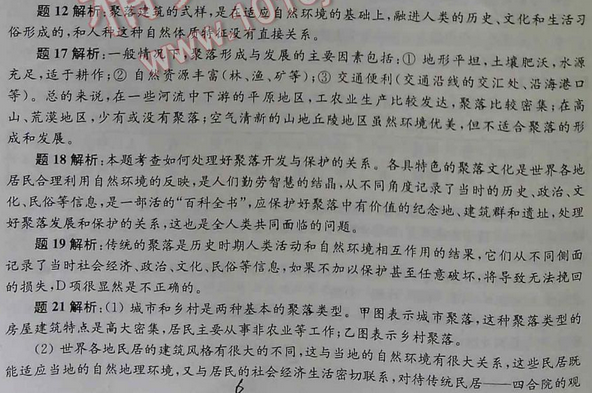 题 12 解析:聚落建筑的式样,是在适应自然环境的基础上,融进人类的历史、文化和生活习
俗形成的,和人种这种自然体质特征没有直接关系。
题 17 解析:一般情况下,聚落形成与发展的主要因素包括:① 地形平坦,土壤肥沃,水源
充足,适于耕作;② 自然资源丰富(林、渔、矿等);③ 交通便利(交通沿线的交汇处、沿海港口
等)。总的来说,在一些河流中下游的平原地区,工农业生产比较发达,聚落比较密集;在高
山、荒漠地区,少有或没有聚落;空气清新的山地丘陵地区虽然环境优美,但不适合聚落的形
成和发展。
题 18 解析:本题考查如何处理好聚落开发与保护的关系。各具特色的聚落文化是世界各地
居民合理利用自然环境的反映,是人们勤劳智慧的结晶,从不同角度记录了当时的历史、政治、文
化、民俗等信息,是一部活的“百科全书”,应保护好聚落中有价值的纪念地、建筑群和遗址,处理
好聚落发展和保护的关系,这也是全人类共同面临的问题。
题 19 解析:传统的聚落是历史时期人类活动和自然环境相互作用的结果,它们从不同侧面
记录了当时社会经济、政治、文化、民俗等信息,如果不加以保护甚至任意破坏,将导致无法挽回
的损失,D 项很显然是不正确的。
题 21 解析:(1) 城市和乡村是两种基本的聚落类型。甲图表示城市聚落,这种聚落类型的
房屋建筑特点是高大密集,居民主要从事非农业等工作;乙图表示乡村聚落。
(2) 世界各地民居的建筑风格有很大的不同,这与当地的自然环境有很大关系,这些民居既
能适应当地的自然地理环境,又与居民的社会经济生活密切联系,对待传统民居——四合院的观
6